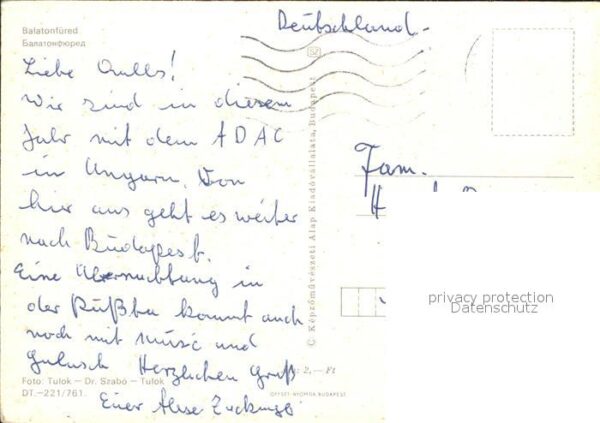 Balatonfüred
Балатонфюред
Deutschland.
Liebe
Wir sind in diesem
Jahr mit dem ADAC
in Ungarn. Von
hier aus geht es weiter
nach Budapest.
Eine Übernachtung in
der Pußta kommt auch
noch mit Musć und
Gulasch Herzlichen Gruß
Euer
Foto: Tulok – Dr. Szabó – Tulok
DT.–221/761.
© Képzőművészeti Alap Kiadóvállalata, Budapest
: 2,— Ft
OFFSET-NYOMDA BUDAPEST
Fam.
H
privacy protection
Datenschutz